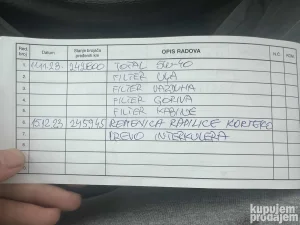 Red. broj Datum Stanje brojača pređenih km OPIS RADOVA
1. 11.11.23. 242600 TOTAL 5W-40
2. FILTER ULJA
3. FILTER VAZDUHA
4. FILTER GORIVA
5. FILTER KABINE
6. 15.12.23 245945 REMENICA RADILICE KORTEKO
7. CREVO INTERKULERA
8.
kupujem
prodajem